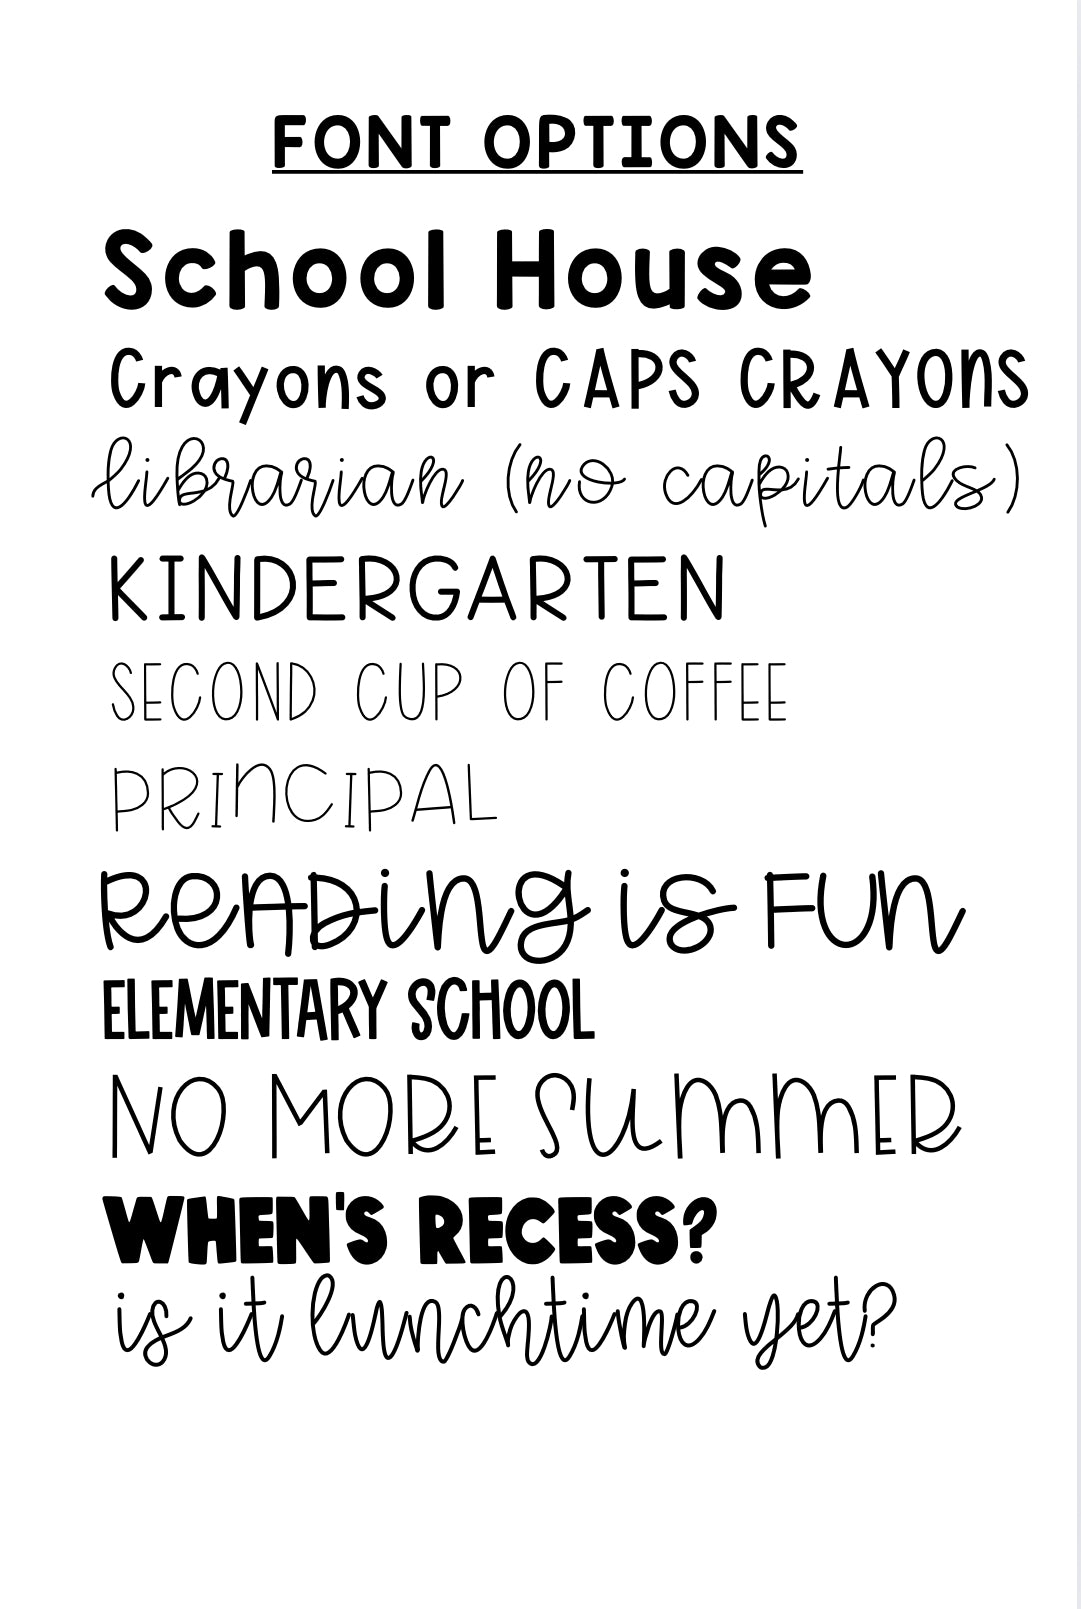 FONT OPTIONS
School House
Crayons or CAPS CRAYONS
librarian (no capitals)
KINDERGARTEN
SECOND CUP OF COFFEE
PRINCIPAL
READing is FUN
ELEMENTARY SCHOOL
NO MORE SUMMER
WHEN'S RECESS?
is it lunchtime yet?